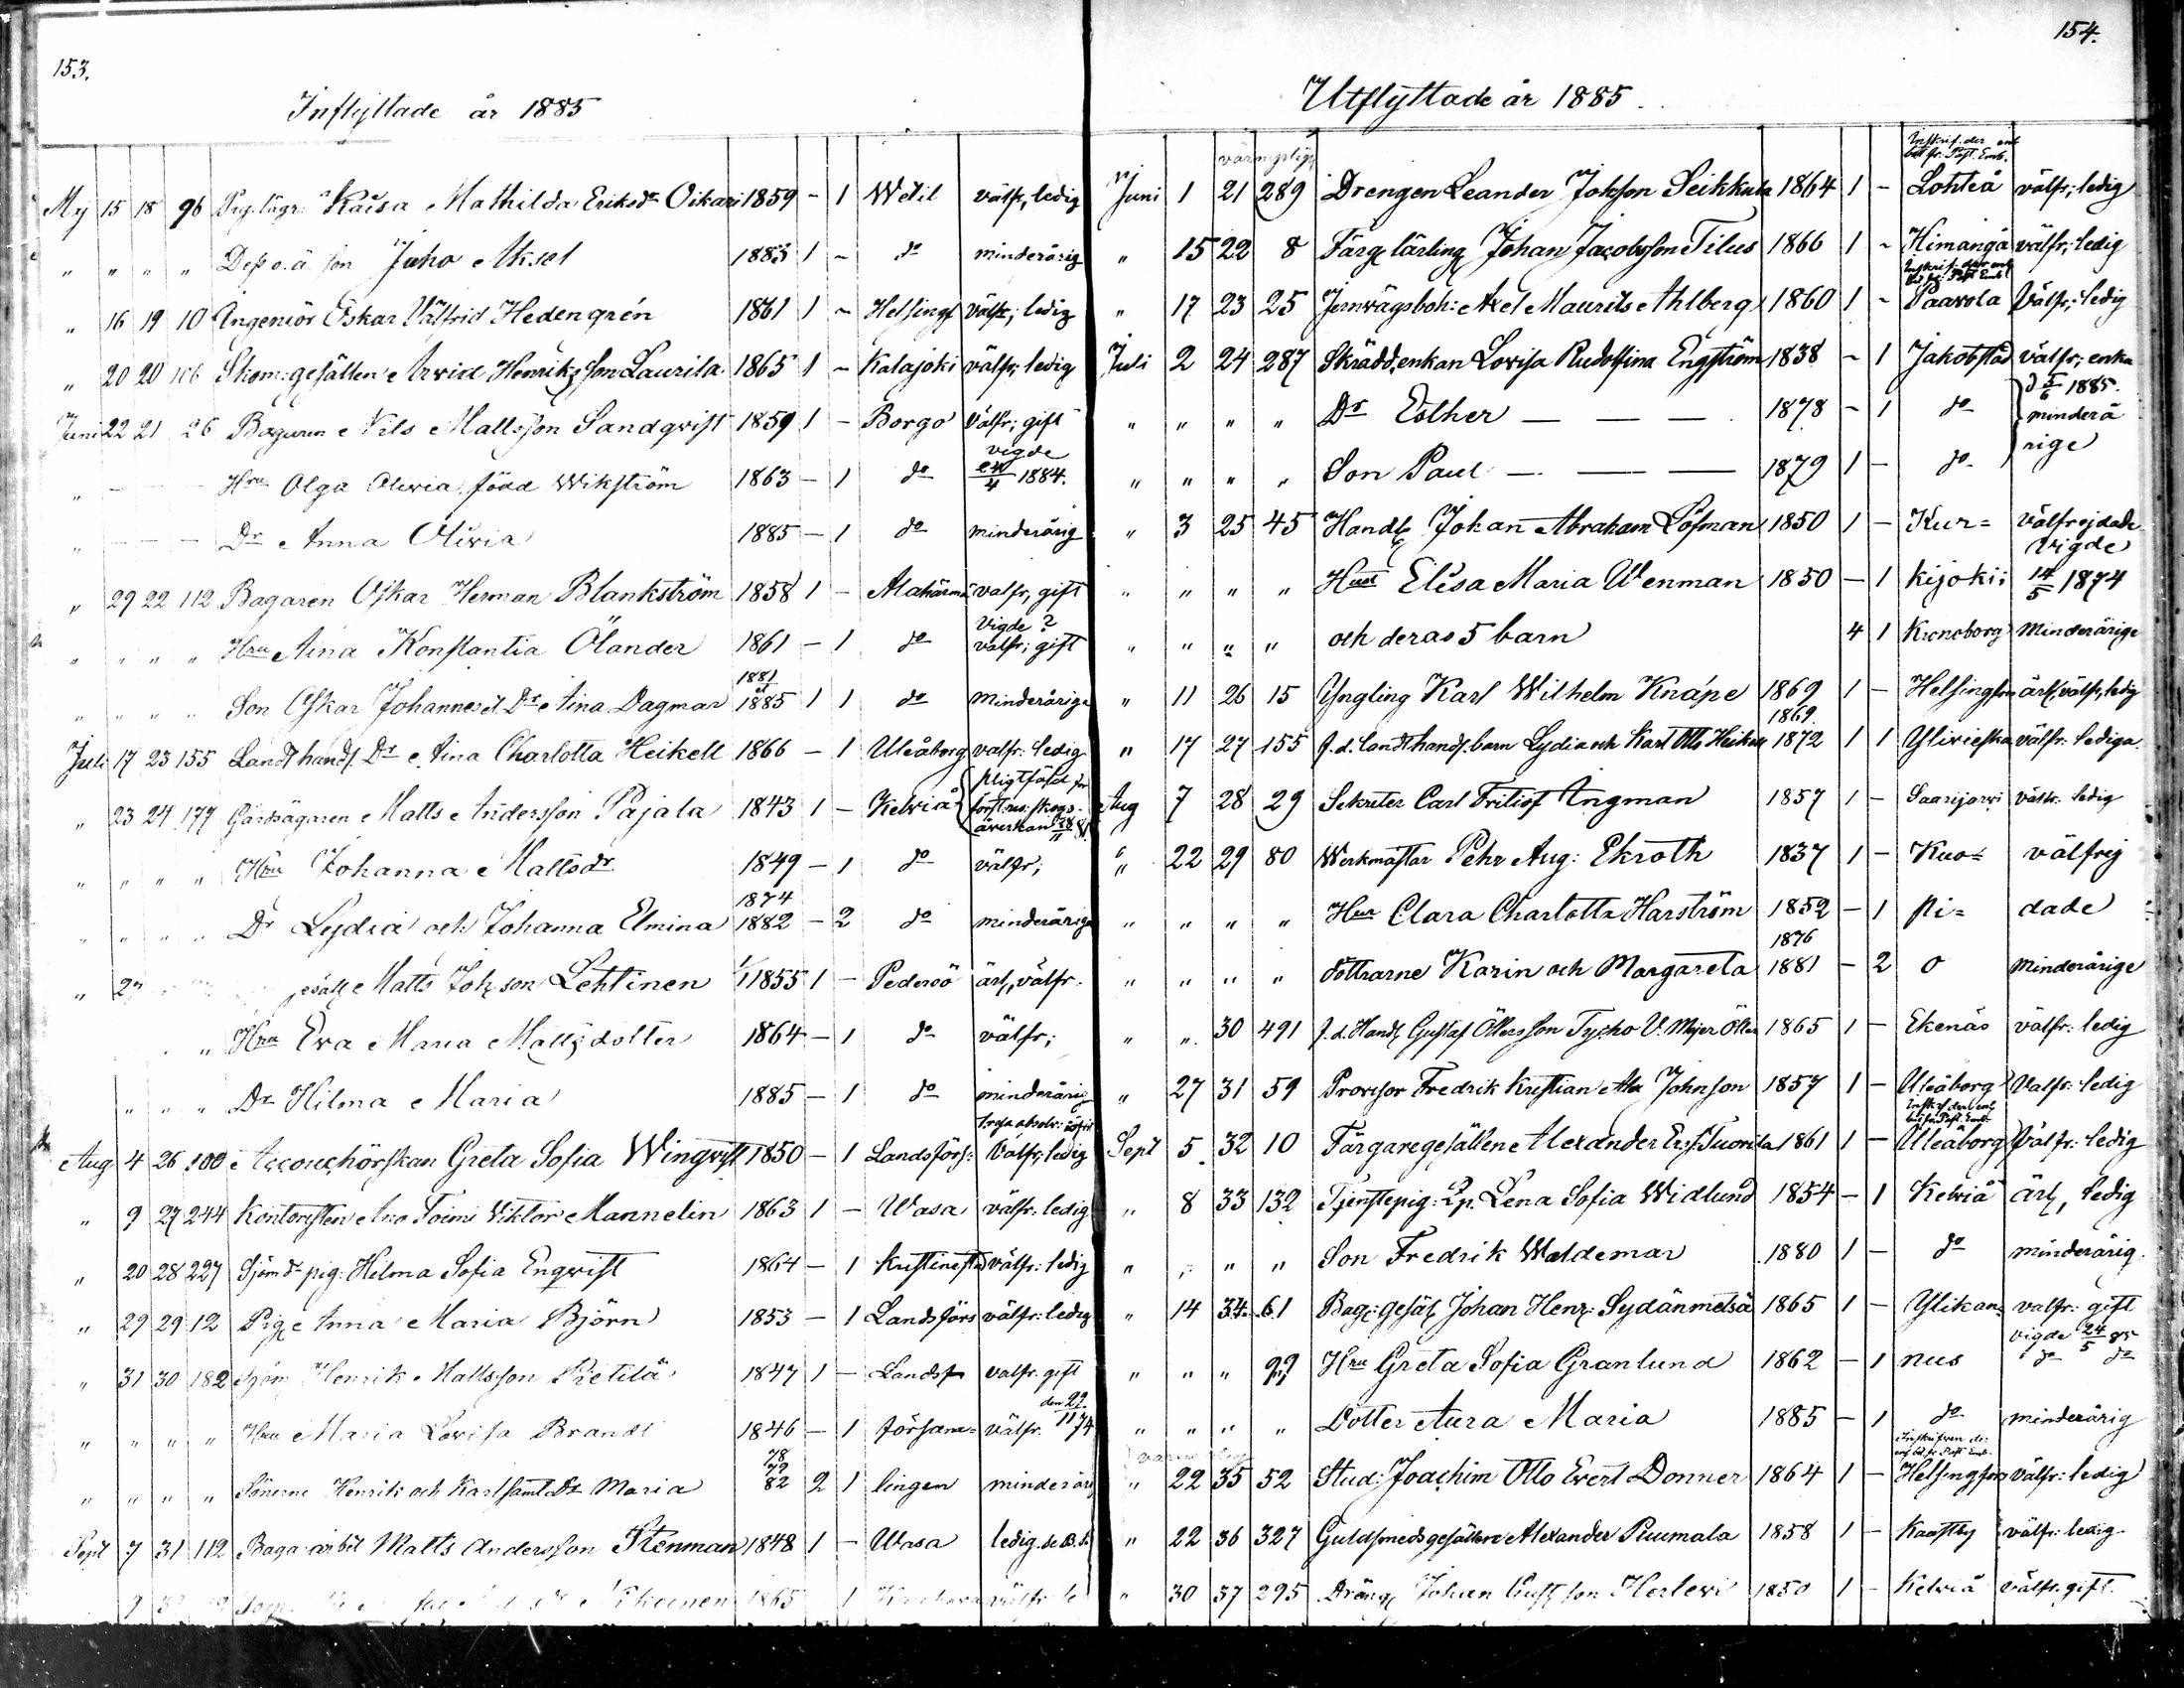 153.
Inflyttade år 1885
Maj 15 18 96 Pig. lägr: Kaisa Mathilda Eriksdr Oikari 1859 - 1 Wetil välfr, ledig
" " " " Dess o. ä. son Juho Aksel 1883 1 - do minderårig
" 16 19 10 Ingeniör Oskar Valfrid Hedengrén 1861 1 - Helsingf välfr; ledig
" 20 20 106 Skom: gesällen Arvid Henriksson Laurila 1865 1 - Kalajoki välfr; ledig
Juni 22 21 26 Bagaren Nils Mattsson Sandqvist 1859 1 - Borgo Välfr; gift
vigde
" - - - Hru Olga Olivia född Wikström 1863 - 1 do 4 1884.
" - - - Dr Anna Olivia 1885 - 1 do minderårig
" 29 22 112 Bagaren Oskar Herman Blankström 1858 1 - Alahärmä välfr, gift
Vigde ?
" " " " Hru Aina Konstantia Ölander 1861 - 1 do välfr; gift
1881 et
" " " " Son Oskar Johannes et Dr Aina Dagmar 1885 1 1 do Minderåriga
Juli 17 23 155 Landthandl. Dr Aina Charlotta Heikell 1866 - 1 Uleåborg välfr: ledig
pligtfäld för
" 23 24 177 Gårdsägaren Matts Andersson Pajala 1843 1 - Kelviå skogs-
åverkan 28/11 81
" " " " Hru Johanna Mattsdr 1849 - 1 do välfr;
1874
" " " " Dr Lydia och Johanna Elmina 1882 - 2 do minderåriga
" gesäll Matts Johsson Lehtinen 1855 1 - Pedersö ärl, välfr.
" Hru Eva Maria Mattsdotter 1864 - 1 do välfr;
" " " Dr Hilma Maria 1885 - 1 do minderårig
Aug 4 26 100 Accouchörskan Greta Sofia Wingvist 1850 - 1 Landsförs: Välfr; ledig
" 9 27 244 Kontoristen Arvo Toimi Viktor Mannelin 1863 1 - Wasa välfr: ledig
" 20 28 227 Sjömdr pig: Hilma Sofia Enqvist 1864 - 1 Kristinestad välfr: ledig
" 29 29 12 Pig. Anna Maria Björn 1853 - 1 Landsförs välfr: ledig
" 31 30 182 Sjöm. Henrik Mattsson Pietilä 1847 1 - Landsf välfr. gift
den 22/11 74
" " " " Hru Maria Lovisa Brandt 1846 - 1 försam= välfr.
78
79
" " " " Sönerne Henrik och Karl samt Dr Maria 82 2 1 lingen minderårig
Sept 7 31 112 Baga arbet Matts Andersson Stenman 1848 1 - Wasa ledig.
1865 1
154.
Utflyttade år 1885.
Inskrif. der enl
bet. fr. Past. Emb.
Juni 1 21 289 Drengen Leander Johsson Seikkula 1864 1 - Lohteå välfr; ledig
" 15 22 8 Färg lärling Johan Jacobsson Tilus 1866 1 - Himangå välfr; ledig
" 17 23 25 Jernvägsboh: Axel Maurits Ahlberg 1860 1 - Paavola Välfr; ledig
Juli 2 24 287 Skrädd.enkan Lovisa Rudolfina Engström 1838 - 1 Jakobstad välfr; enka
d 5/6 1885.
" " " " Dr Esther — — — 1878 - 1 do minderå
" " " " Son Paul — — — 1879 1 - do rige
" 3 25 45 Handl Johan Abraham Löfman 1850 1 - Kur= välfrejdade
Vigde
" " " " Hust Elisa Maria Wenman 1850 - 1 kijoki; 14/5 1874
" " " " och deras 5 barn 4 1 Kronoborg Minderårige
" 11 26 15 Yngling Karl Wilhelm Knápe 1869 1 - Helsingfors ärl, välfr, ledig
1869.
" 17 27 155 f. d. landthandl. barn Lydia och Karl Otto Heikell 1872 1 1 Ylivieska välfr: lediga.
Aug 7 28 29 Sekreter Carl Fritiof Ingman 1857 1 - Saarijarvi välfr: ledig
" 22 29 80 Werkmästar Pehr Aug: Ekroth 1837 1 - Kuo= välfrej
" " " " Hru Clara Charlotta Harström 1852 - 1 pi= dade
1876
" " " " döttrarne Karin och Margareta 1881 - 2 o Minderårige
" " 30 491 f. d. Handl Gustaf Öllersson Tycho V. Mejer Öller 1865 1 - Ekenäs välfr: ledig
" 27 31 59 Provisor Fredrik Kristian Alex Johnson 1857 1 - Uleåborg Välfr: ledig
Sept 5 32 10 Färgaregesällen Alexander Ers. Tuorila 1861 1 - Uleåborg Välfr: ledig
" 8 33 132 Tjenstepig: Lp. Lena Sofia Widlund 1854 - 1 Kelviå ärl, ledig
" " " " Son Fredrik Waldemar 1880 1 - do minderårig.
" 14 34 61 Bag: gesäl Johan Henr: Sydänmetsä 1865 1 - Ylikan= välfr: gift
vigde 24/5 85
" " " 99 Hru Greta Sofia Granlund 1862 - 1 nus do do
" " " " Dotter Aura Maria 1885 - 1 do minderårig
" 22 35 52 Stud: Joachim Otto Evert Donner 1864 1 - Helsingfors välfr: ledig
" 22 36 327 Guldsmedsgesällen Alexander Ruumala 1858 1 - Kaustby välfr: ledig
" 30 37 295 Dräng Johan Gustsson Herlevi 1850 1 - Kelviå välfr. gift.